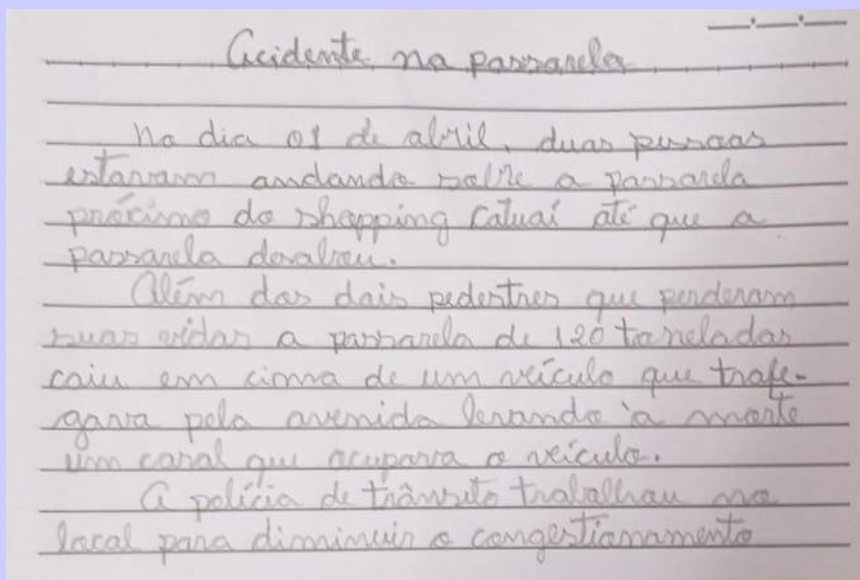 Acidente na passarela
No dia 01 de abril, duas pessoas
estavam andando sobre a passarela
próximo do shopping Catuaí até que a
passarela desabou.
Além dos dois pedestres que perderam
suas vidas a passarela de 120 toneladas
caiu em cima de um veículo que trafe-
gava pela avenida levando à morte
um casal que ocupava o veículo.
A polícia de trânsito trabalhou no
local para diminuir o congestionamento